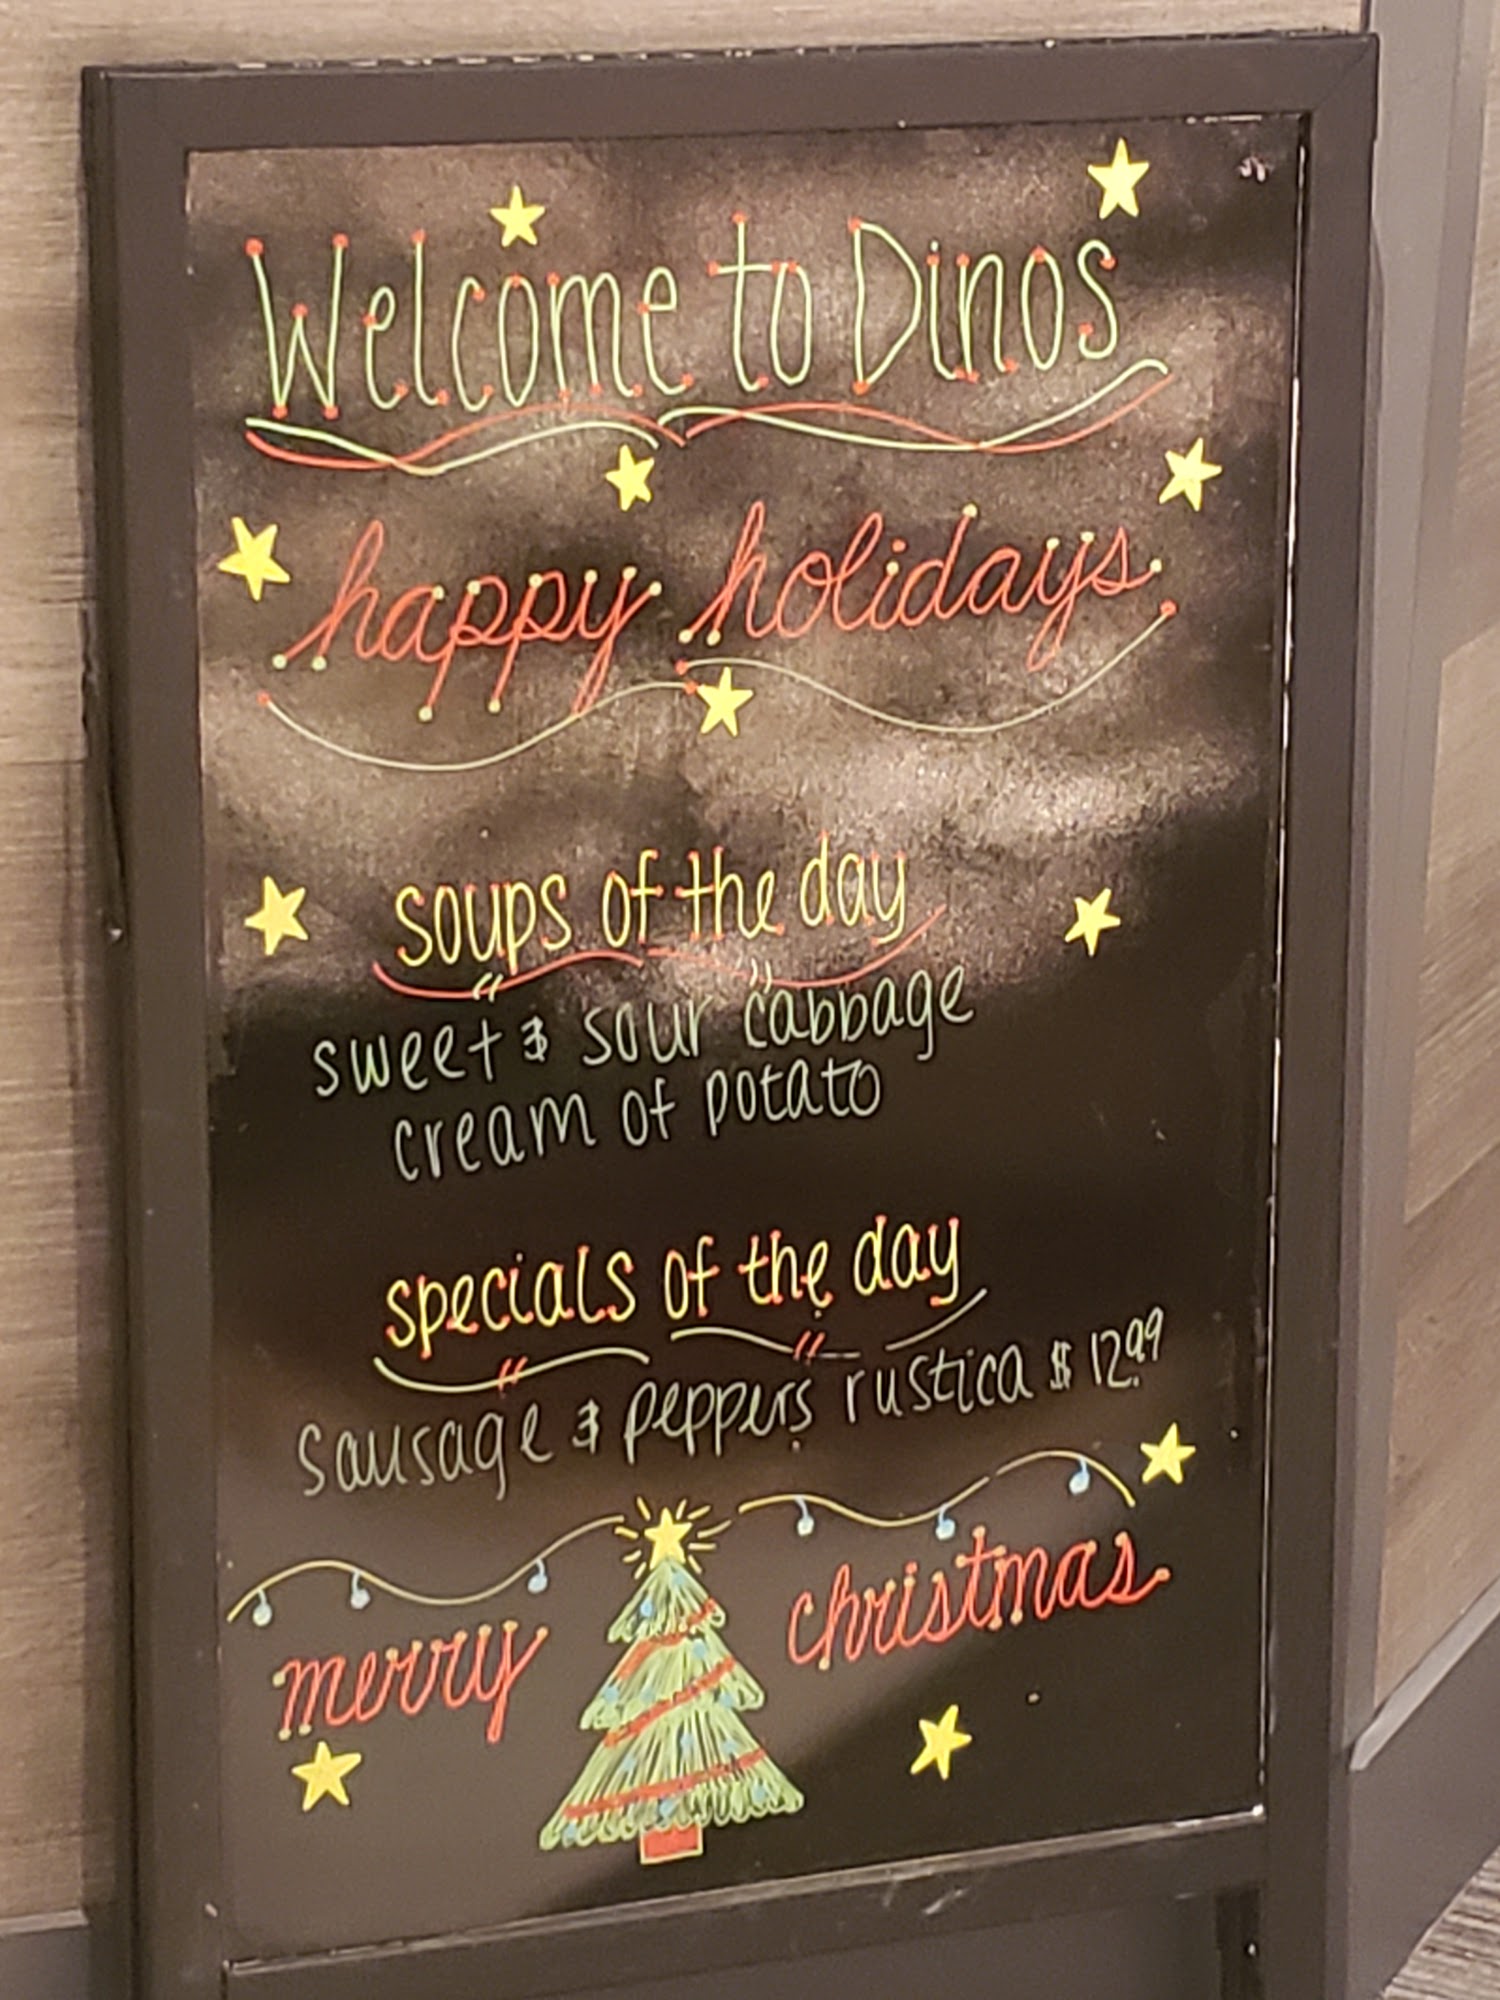 Welcome to Dinos
happy holidays
soups of the day
sweet & sour cabbage
cream of potato
specials of the day
sausage & peppers rustica $12.99
merry christmas